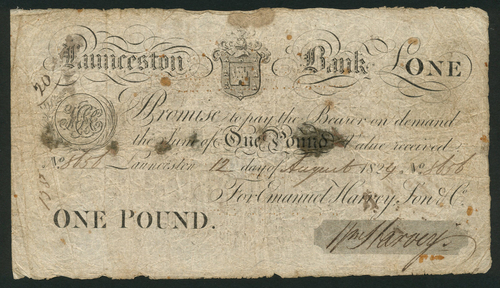 Launceston Bank £ONE
20
I Promise to pay the Bearer on demand
the Sum of One Pound Value received
No. 8656 Launceston 12 day of August 1824 No. 8656
For Emanuel Harvey, Son & Co.
ONE POUND.
Wm Harvey.